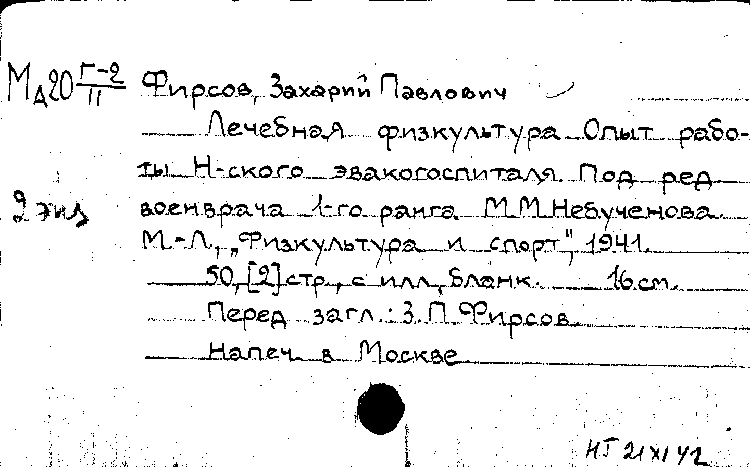 Мд20 Г-2/II Фирсов, Захарий Павлович
Лечебная физкультура. Опыт рабо-
ты Н-ского эвакогоспиталя. Под ред.
2 экз военврача 1-го ранга М.М.Небученова.
М.-Л., „Физкультура и спорт", 1941.
50, [2] стр., с илл., бланк. 16 см.
Перед загл.: З.П.Фирсов.
Напеч. в Москве
НГ 21 XI 42